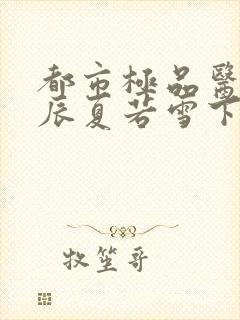 都市極品醫
辰夏若雪下
牧笙哥